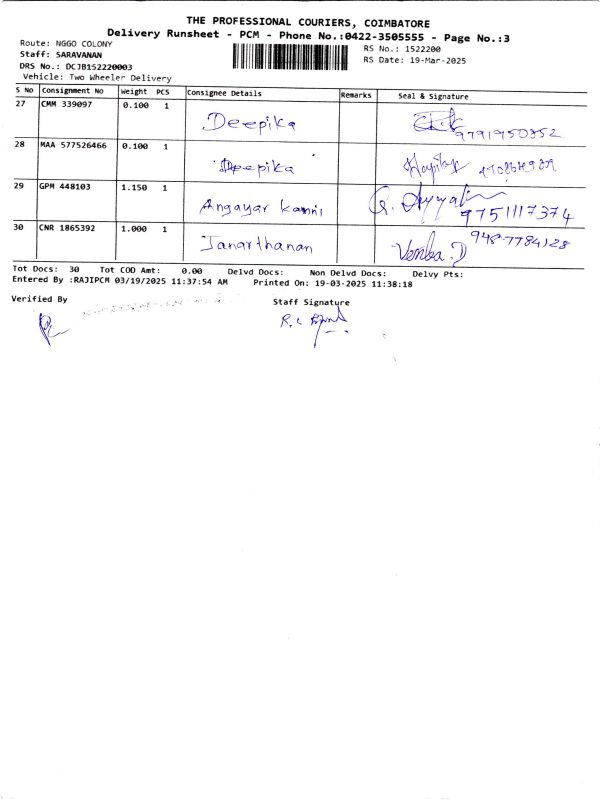 THE PROFESSIONAL COURIERS, COIMBATORE
Delivery Runsheet - PCM - Phone No.:0422-3505555 - Page No.:3
Route: NGGO COLONY
RS No.: 1522200
Staff: SARAVANAN
RS Date: 19-Mar-2025
DRS No.: DCJB152220003
Vehicle: Two Wheeler Delivery
S No Consignment No Weight PCS Consignee Details Remarks Seal & Signature
27 CMM 339097 0.100 1 Deepika 9791950852
28 MAA 577526466 0.100 1 Deepika
29 GPM 448103 1.150 1 Angayar Kanni 9751117374
30 CNR 1865392 1.000 1 Janarthanan Vemba.D 948-7784128
Tot Docs: 30 Tot COD Amt: 0.00 Delvd Docs: Non Delvd Docs: Delvy Pts:
Entered By :RAJIPCM 03/19/2025 11:37:54 AM Printed On: 19-03-2025 11:38:18
Verified By
Staff Signature